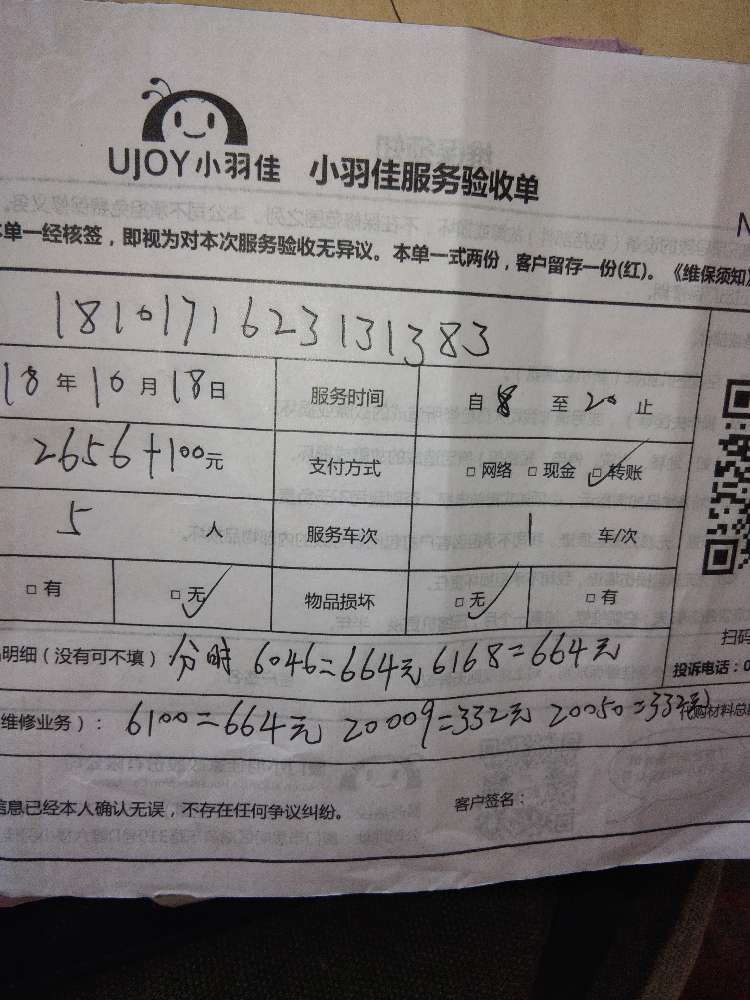 UJOY小羽佳 小羽佳服务验收单
N
本单一经核签，即视为对本次服务验收无异议。本单一式两份，客户留存一份(红)。《维保须知》
181017162313138​3
18年10月18日 服务时间 自8至20止
2656+100元 支付方式 □网络 □现金 □转账
5人 服务车次 1车/次
□有 □无 物品损坏 □无 □有
扫码
明细（没有可不填）：分时 6046=664元 6168=664元
投诉电话：0
维修业务）： 6100=664元 20009=332元 20050=332元
代购材料总
信息已经本人确认无误，不存在任何争议纠纷。 客户签名：